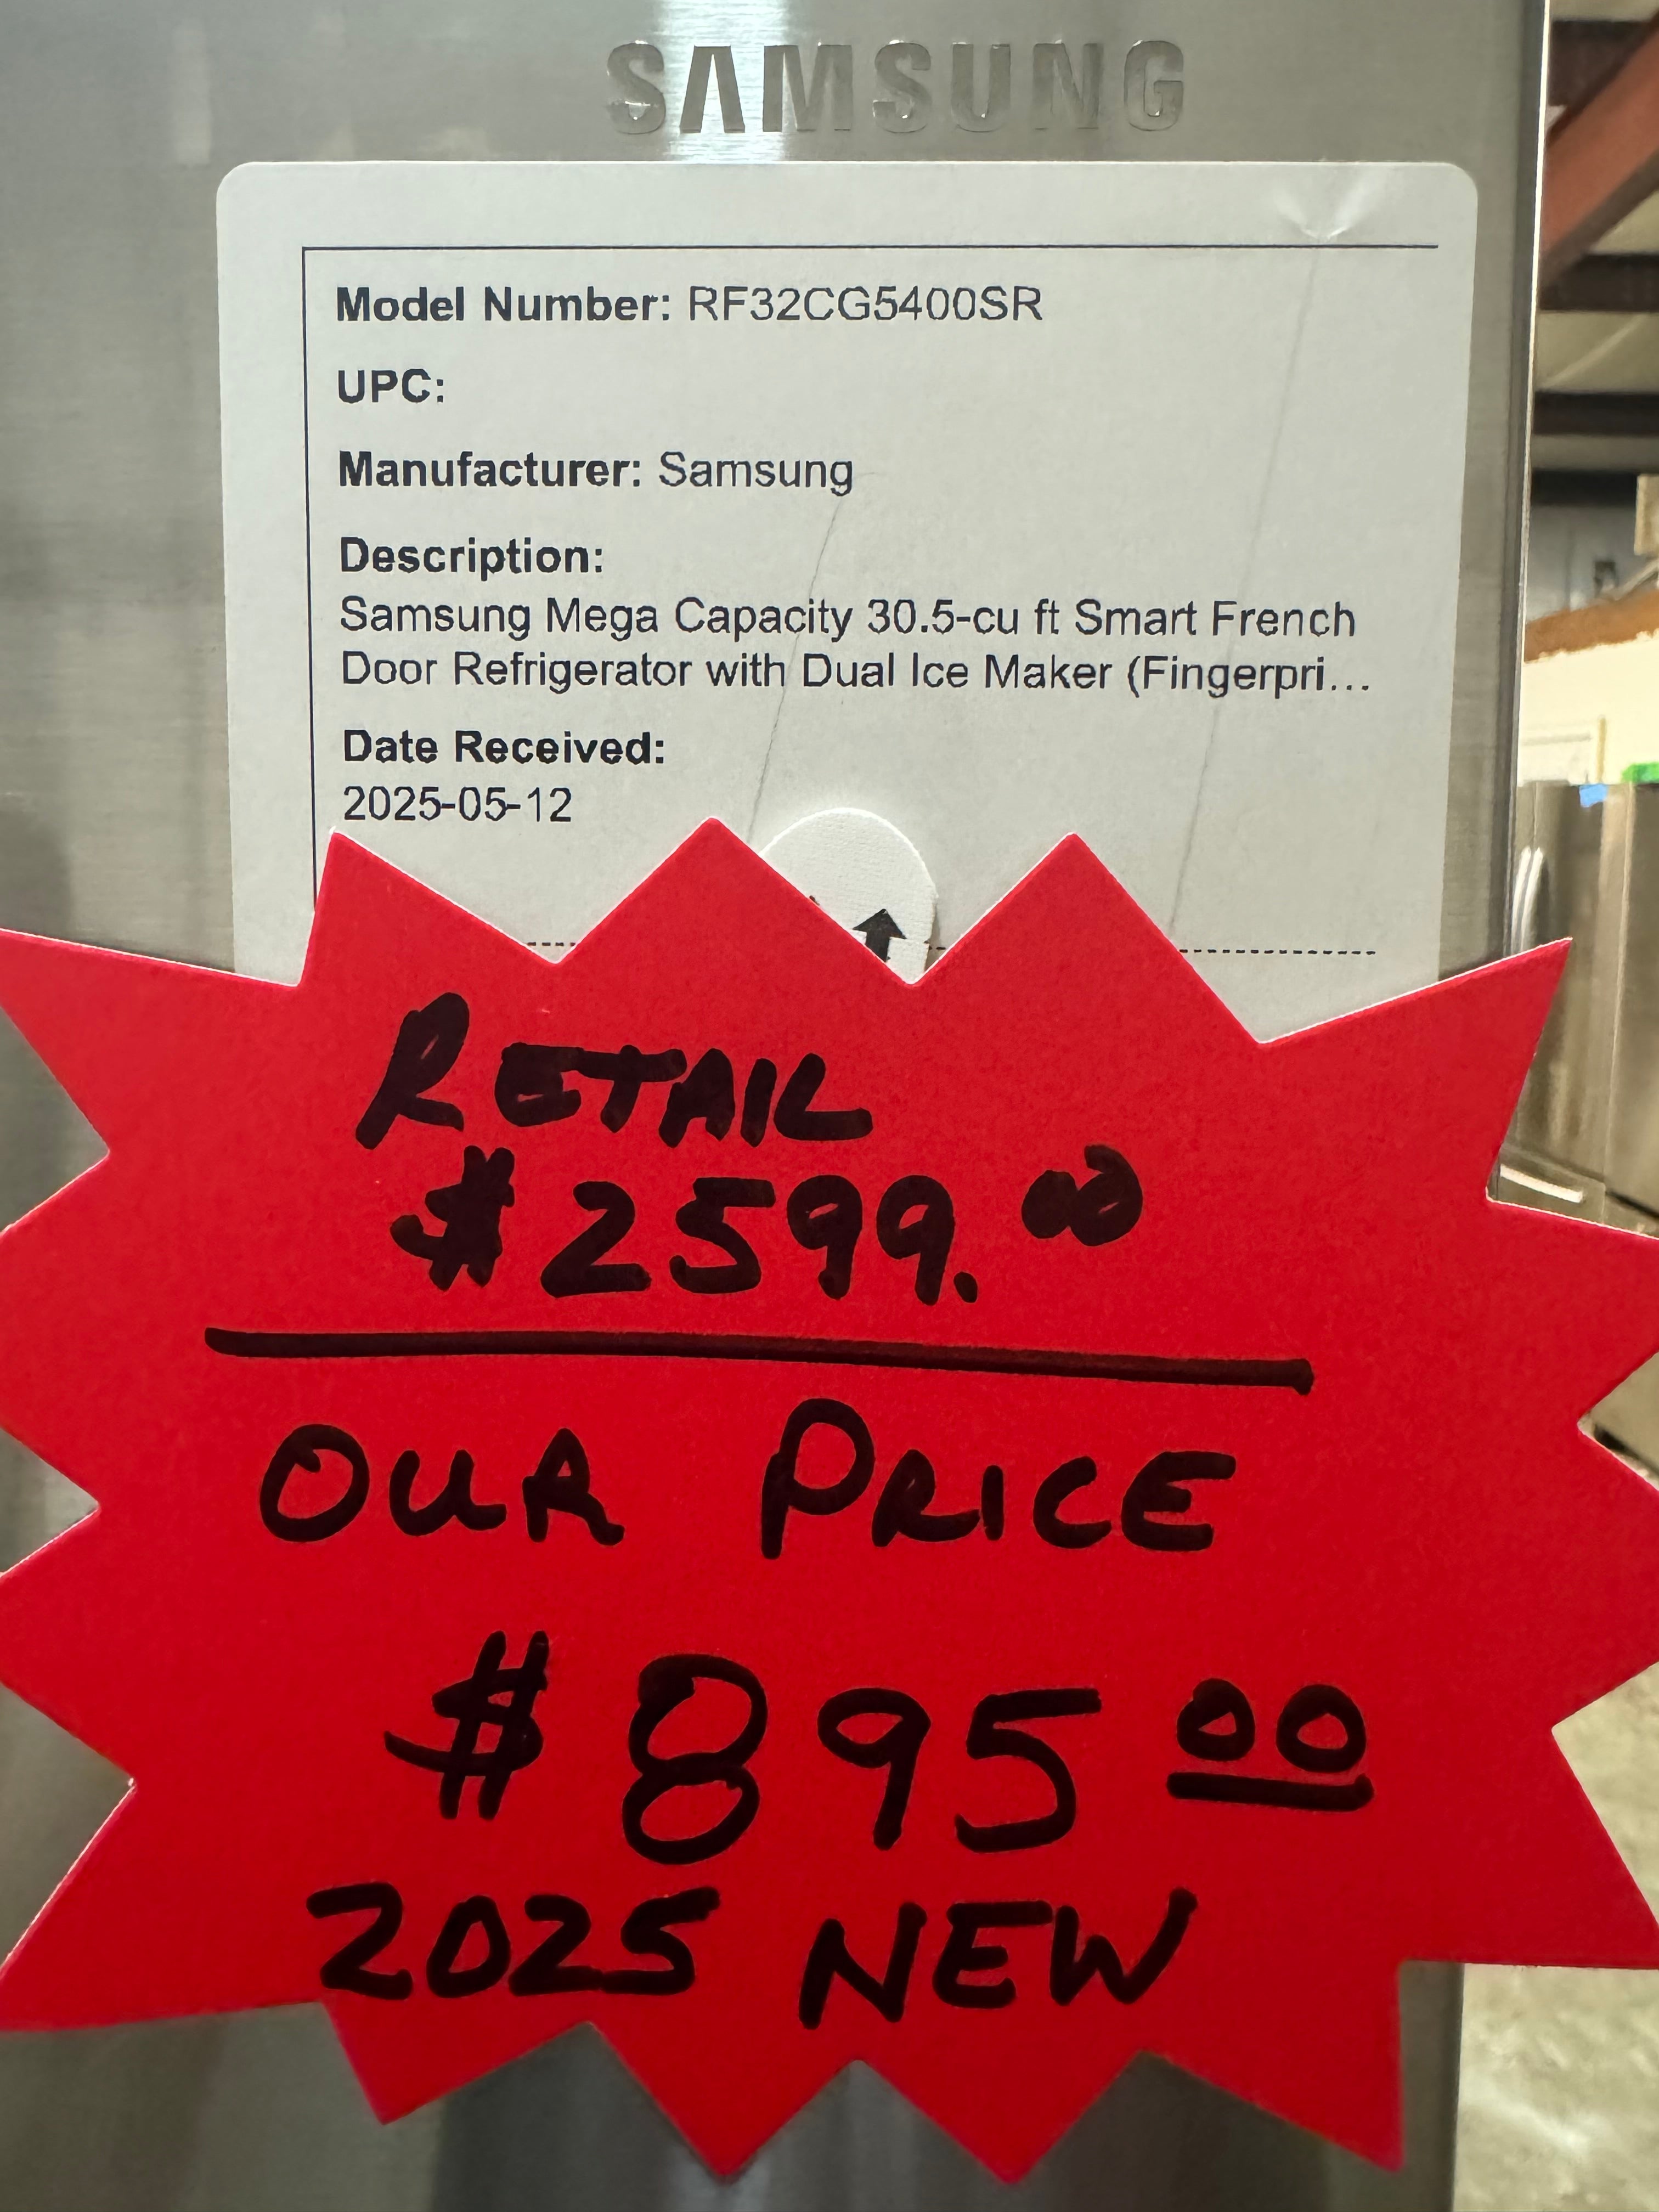 SAMSUNG
Model Number: RF32CG5400SR
UPC:
Manufacturer: Samsung
Description:
Samsung Mega Capacity 30.5-cu ft Smart French
Door Refrigerator with Dual Ice Maker (Fingerpri...
Date Received:
2025-05-12
RETAIL
$2599.00
OUR PRICE
$895 00
2025 NEW